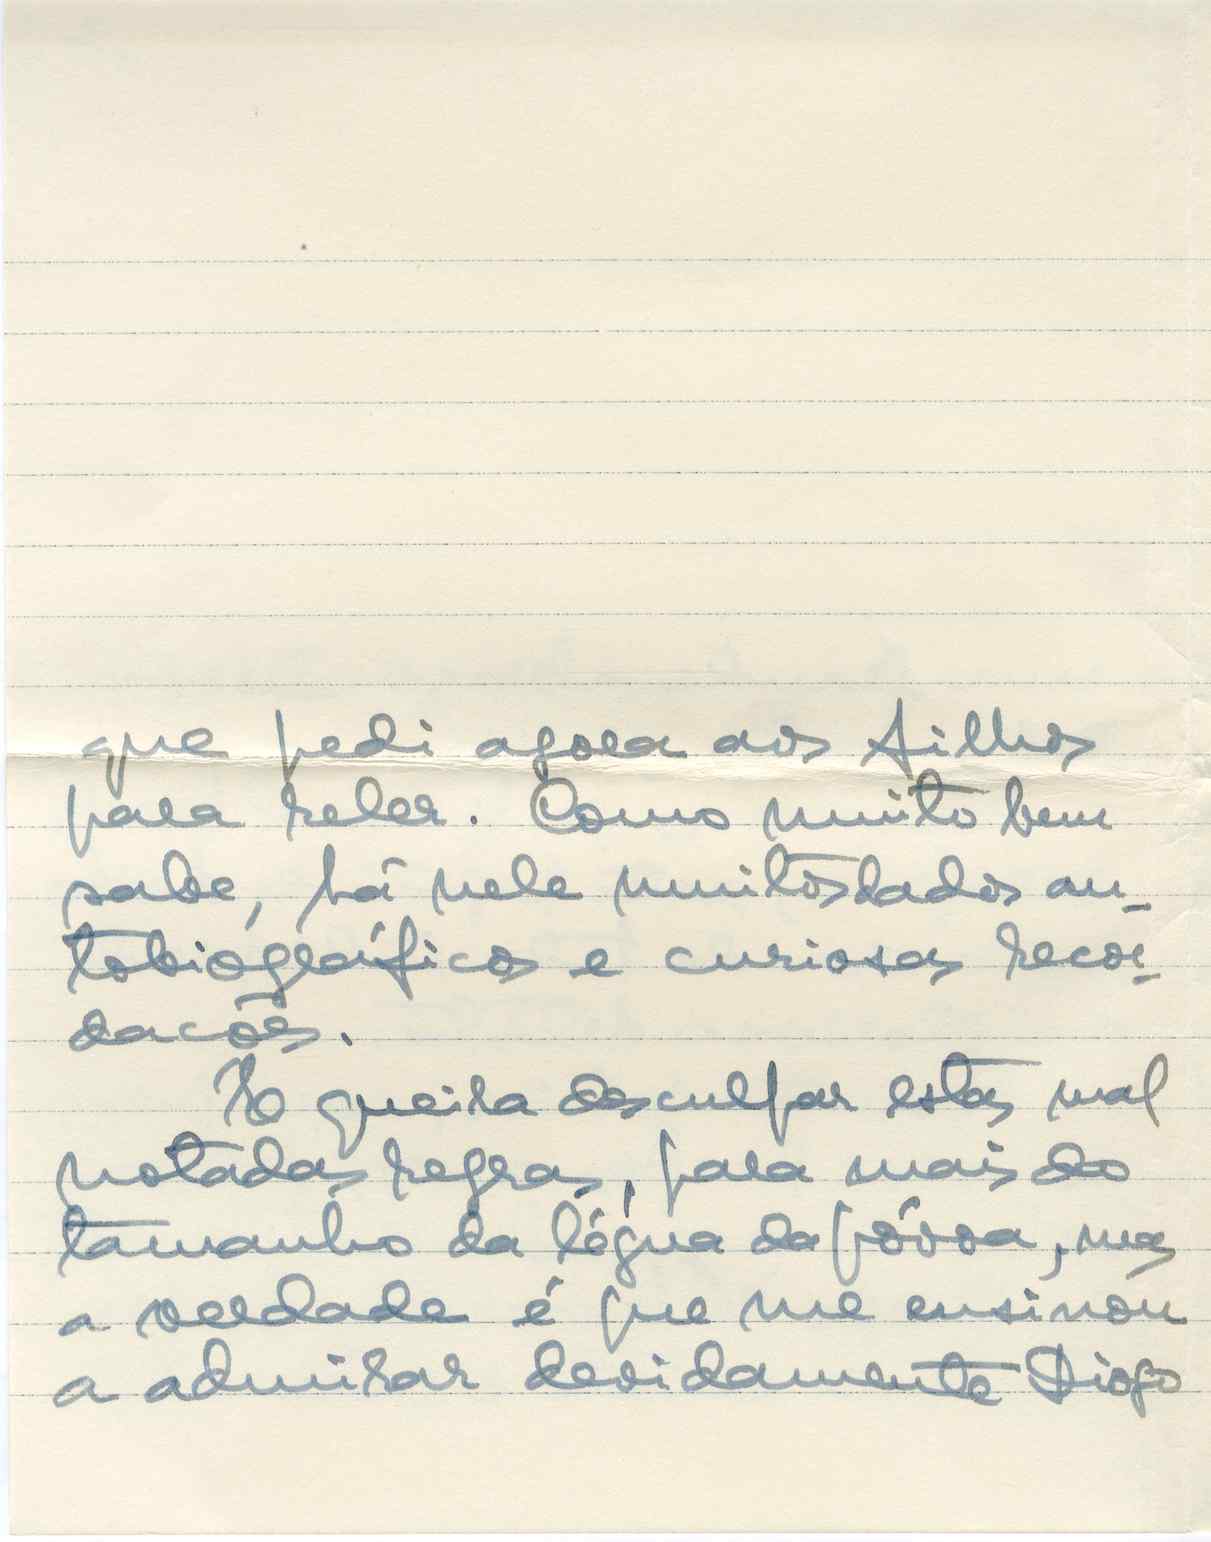 que pedi agora aos filhos
para reler. Como muito bem
sabe, há nele muitos dados au-
tobiográficos e curiosas recor-
dacões.
E queira desculpar estas mal
notadas regras, para mais do
tamanho da légua da póvoa, mas
a verdade é que me ensinou
a admirar devidamente Diogo